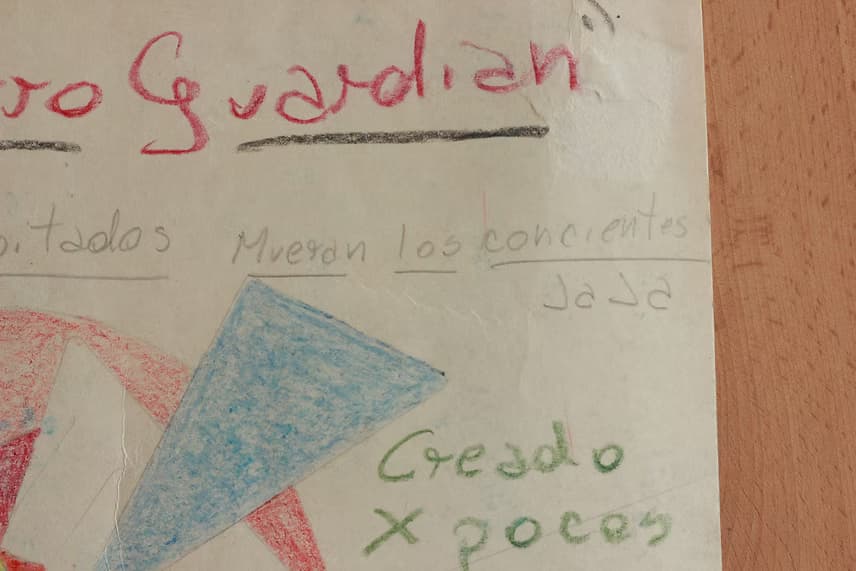 ro Guardian"
pitados Mueran los concientes
JaJa
Creado
X pocos